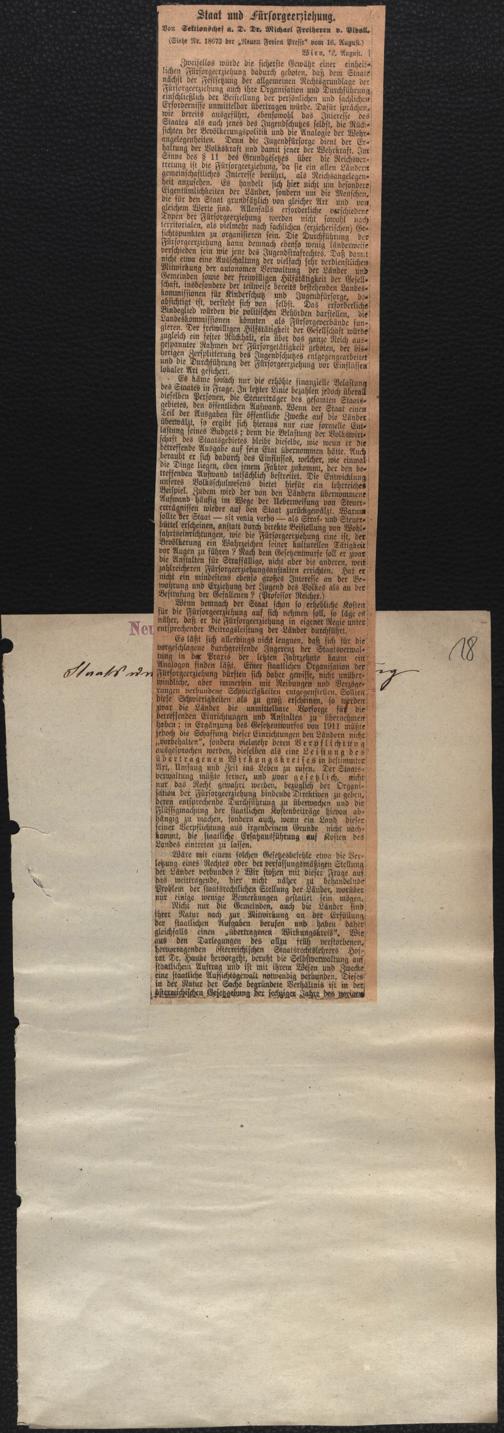 Staat und Fürsorgeerziehung.
Von Sektionschef a. D. Dr. Michael Freiherrn v. Pidoll.
(Siehe Nr. 18673 der „Neuen Freien Presse“ vom 16. August.)
Wien, August.
Zweifellos würde die sicherste Gewähr einer einheit-
lichen Fürsorgeerziehung dadurch geboten, daß dem Staat
nächst der Festsetzung der allgemeinen Rechtsgrundlage der
Fürsorgeerziehung auch ihre Organisation und Durchführung
einschließlich der Beistellung der persönlichen und sachlichen
Erfordernisse unmittelbar übertragen würde. Dafür sprächen,
wie bereits ausgeführt, ebensowohl das Interesse des
Staates als auch jenes des Jugendschutzes selbst, die Rück-
sichten der Bevölkerungspolitik und die Analogie der Wehr-
angelegenheiten. Denn die Jugendfürsorge dient der Er-
haltung der Volkskraft und damit jener der Wehrkraft. Im
Sinne des § 11 des Grundgesetzes über die Reichsver-
tretung ist die Fürsorgeerziehung, da sie ein allen Ländern
gemeinschaftliches Interesse berührt, als Reichsangelegen-
heit anzusehen. Es handelt sich hier nicht um besondere
Eigentümlichkeiten der Länder, sondern um die Menschen,
die für den Staat grundsätzlich von gleicher Art und von
gleichem Werte sind. Allenfalls erforderliche verschiedene
Typen der Fürsorgeerziehung werden nicht sowohl nach
territorialen, als vielmehr nach sachlichen (erzieherischen) Ge-
sichtspunkten zu organisieren sein. Die Durchführung der
Fürsorgeerziehung kann demnach ebenso wenig länderweise
verschieden sein wie jene des Jugendstrafrechtes. Daß damit
nicht etwa eine Ausschaltung der vielfach sehr verdienstlichen
Mitwirkung der autonomen Verwaltung der Länder und
Gemeinden sowie der freiwilligen Hilfstätigkeit der Gesell-
schaft, insbesondere der teilweise bereits bestehenden Landes-
kommissionen für Kinderschutz und Jugendfürsorge, be-
absichtigt ist, versteht sich von selbst. Das erforderliche
Bindeglied würden die politischen Behörden darstellen, die
Landeskommissionen könnten als Fürsorgeverbände fun-
gieren. Der freiwilligen Hilfstätigkeit der Gesellschaft würde
zugleich ein fester Rückhalt, ein über das ganze Reich aus-
gespannter Rahmen der Fürsorgetätigkeit geboten, der bis-
herigen Zersplitterung des Jugendschutzes entgegengearbeitet
und die Durchführung der Fürsorgeerziehung vor Einflüssen
lokaler Art gesichert.
Es käme sonach nur die erhöhte finanzielle Belastung
des Staates in Frage. In letzter Linie bezahlen jedoch überall
dieselben Personen, die Steuerträger des gesamten Staats-
gebietes, den öffentlichen Aufwand. Wenn der Staat einen
Teil der Ausgaben für öffentliche Zwecke auf die Länder
überwälzt, so ergibt sich hieraus nur eine formelle Ent-
lastung seines Budgets; denn die Belastung der Volkswirt-
schaft des Staatsgebietes bleibt dieselbe, wie wenn er die
betreffende Ausgabe auf sein Etat übernommen hätte. Auch
beraubt er sich dadurch des Einflusses, welcher, wie einmal
die Dinge liegen, eben jenem Faktor zukommt, der den be-
treffenden Aufwand tatsächlich bestreitet. Die Entwicklung
unseres Volksschulwesens bietet hiefür ein lehrreiches
Beispiel. Zudem wird der von den Ländern übernommene
Aufwand häufig im Wege der Ueberweisung von Steuer-
erträgnissen wieder auf den Staat zurückgewälzt. Warum
sollte der Staat — sit venia verbo — als Straf- und Steuer-
büttel erscheinen, anstatt durch direkte Beistellung von Wohl-
fahrtseinrichtungen, wie die Fürsorgeerziehung eine ist, der
Bevölkerung ein Wahrzeichen seiner kulturellen Tätigkeit
vor Augen zu führen? Nach dem Gesetzentwurfe soll er zwar
die Anstalten für Straffällige, nicht aber die anderen, weit
zahlreicheren Fürsorgeerziehungsanstalten errichten. Hat er
nicht ein mindestens ebenso großes Interesse an der Be-
wahrung und Erziehung der Jugend des Volkes als an der
Bestrafung der Gefallenen? (Professor Reicher.)
Wenn demnach der Staat schon so erhebliche Kosten
für die Fürsorgeerziehung auf sich nehmen soll, so läge es
näher, daß er die Fürsorgeerziehung in eigener Regie unter
entsprechender Beitragsleistung der Länder durchführt.
Es läßt sich allerdings nicht leugnen, daß sich für die
vorgeschlagene durchgreifende Ingerenz der Staatsverwal-
tung in der Praxis der letzten Jahrzehnte kaum ein
Analogon finden läßt. Einer staatlichen Organisation der
Fürsorgeerziehung dürften sich daher gewisse, nicht unüber-
windliche, aber immerhin mit Reibungen und Verzöge-
rungen verbundene Schwierigkeiten entgegenstellen. Sollten
diese Schwierigkeiten als zu groß erscheinen, so werden
zwar die Länder die unmittelbare Vorsorge für die
betreffenden Einrichtungen und Anstalten zu übernehmen
haben; in Ergänzung des Gesetzentwurfes von 1911 müßte
jedoch die Schaffung dieser Einrichtungen den Ländern nicht
„vorbehalten“, sondern vielmehr deren Verpflichtung
ausgesprochen werden, dieselben als eine Leistung des
übertragenen Wirkungskreises in bestimmter
Art, Umfang und Zeit ins Leben zu rufen. Der Staats-
verwaltung müßte ferner, und zwar gesetzlich, nicht
nur das Recht gewahrt werden, bezüglich der Organi-
sation der Fürsorgeerziehung bindende Direktiven zu geben,
deren entsprechende Durchführung zu überwachen und die
Flüssigmachung der staatlichen Kostenbeiträge hievon ab-
hängig zu machen, sondern auch, wenn ein Land dieser
seiner Verpflichtung aus irgendeinem Grunde nicht nach-
kommt, die staatliche Ersatzausführung auf Kosten des
Landes eintreten zu lassen.
Wäre mit einem solchen Gesetzesbefehle etwa die Ver-
letzung eines Rechtes oder der verfassungsmäßigen Stellung
der Länder verbunden? Wir stoßen mit dieser Frage auf
das weittragende, hier nicht näher zu behandelnde
Problem der staatsrechtlichen Stellung der Länder, worüber
nur einige wenige Bemerkungen gestattet sein mögen.
Nicht nur die Gemeinden, auch die Länder sind
ihrer Natur nach zur Mitwirkung an der Erfüllung
der staatlichen Aufgaben berufen und haben daher
gleichfalls einen „übertragenen Wirkungskreis“. Wie
aus den Darlegungen des allzu früh verstorbenen,
hervorragenden österreichischen Staatsrechtslehrers Hof-
rat Dr. Hauke hervorgeht, beruht die Selbstverwaltung auf
staatlichem Auftrag und ist mit ihrem Wesen und Zwecke
eine staatliche Aufsichtsgewalt notwendig verbunden. Dieses
in der Natur der Sache begründete Verhältnis ist in der
österreichischen Gesetzgebung der sechziger Jahre des vorigen
Neu
18
Staat und